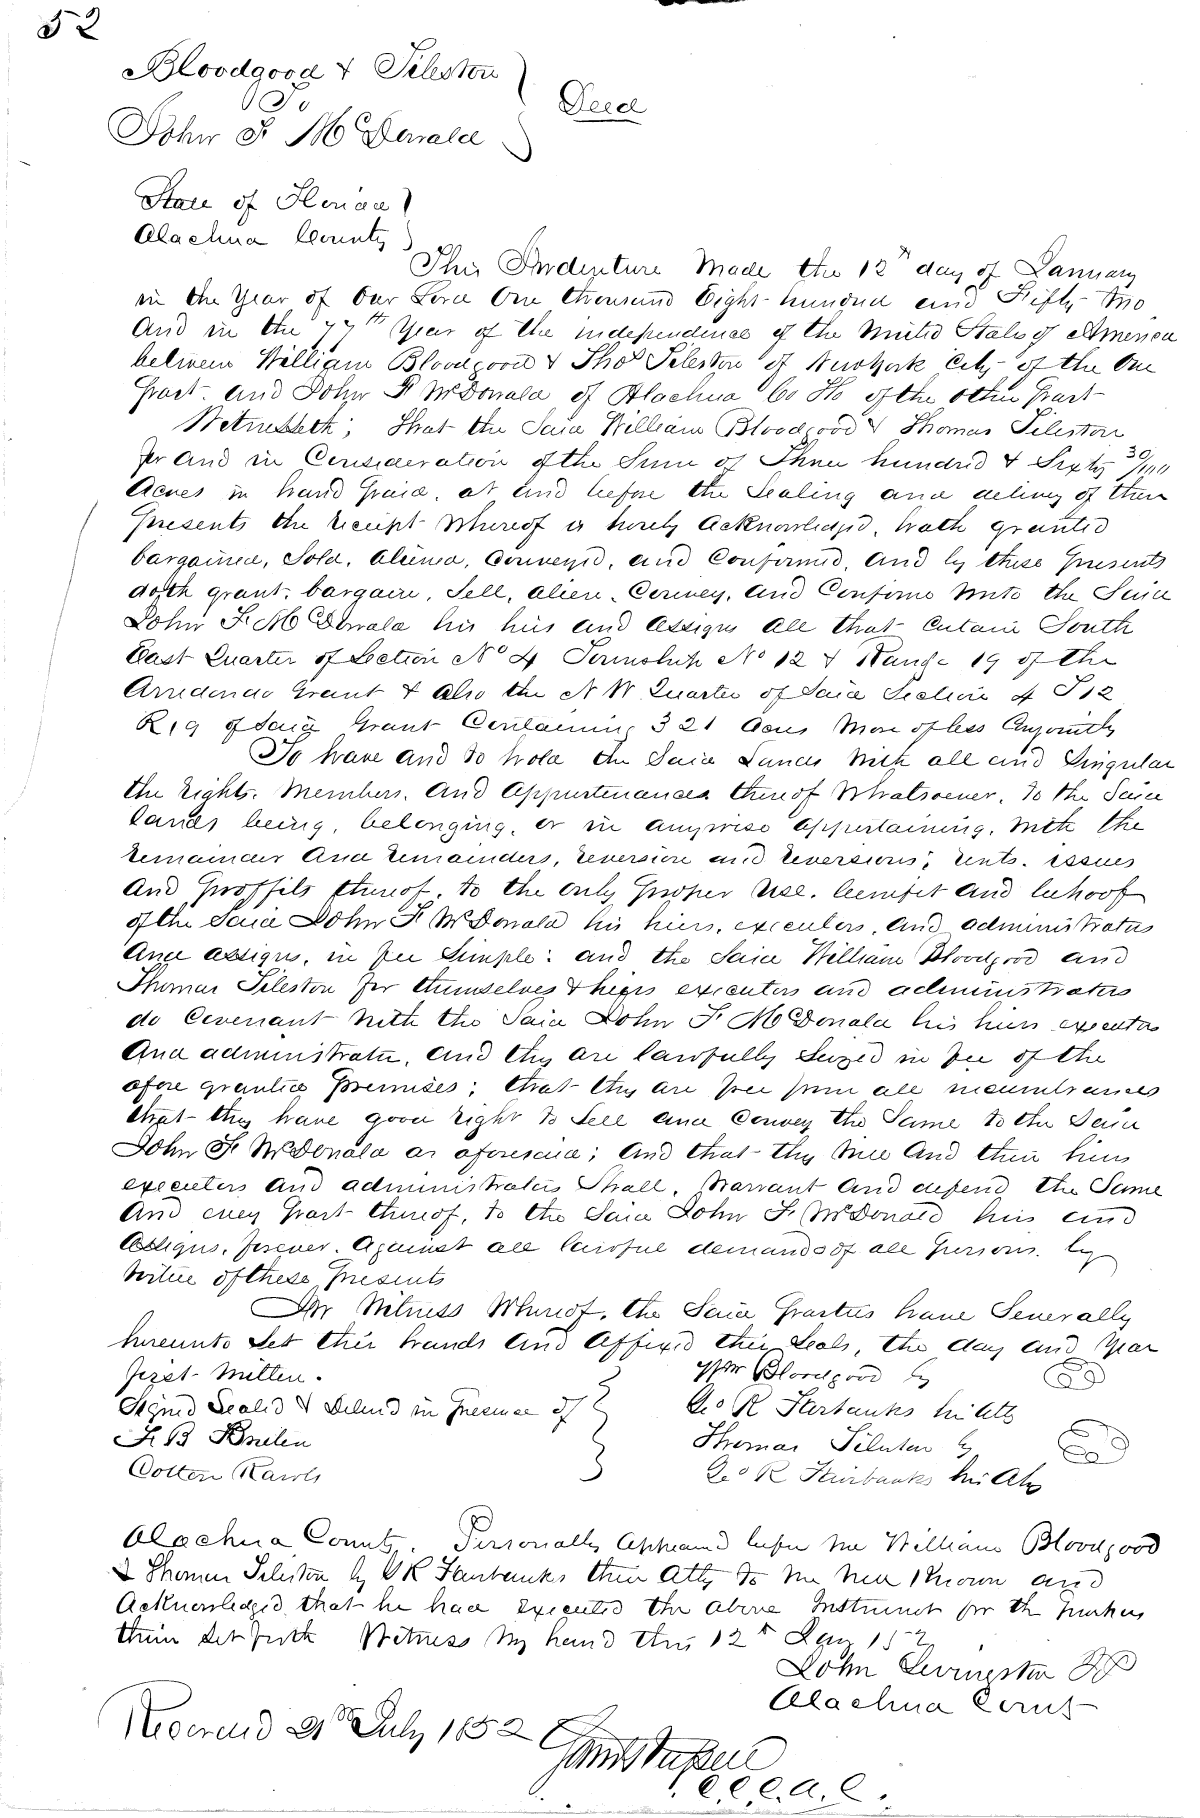 52
Bloodgood & Tileston
To
John F McDonald
Deed
State of Florida
Alachua County
This Indenture Made the 12th day of January
in the Year of Our Lord One thousand Eight hundred and Fifty two
And in the 77th Year of the independence of the United States of America
between William Bloodgood & Thos Tileston of New York City of the One
part and John F McDonald of Alachua Co Fla of the other part
Witnesseth; That the Said William Bloodgood & Thomas Tileston
for and in Consideration of the Sum of Three hundred & Sixty 30/100
Acres in hand paid, at and before the Sealing and delivery of these
presents the receipt whereof is hereby acknowledged, hath granted
bargained, Sold, aliened, Conveyed, and Confirmed, and by these presents
doth grant, bargain, Sell, alien, Convey, and Confirm unto the Said
John F McDonald his heirs and assigns all that certain South
East Quarter of Section No 4 Township No 12 & Range 19 of the
Arredondo Grant & also the N W Quarter of Said Section 4 T 12
R 19 of Said Grant Containing 321 acres more or less
To have and to hold the Said Lands with all and Singular
the rights, members, and appurtenances thereof whatsoever, to the Said
lands being, belonging, or in anywise appertaining, with the
remainder and remainders, reversion and reversions, rents, issues
And proffits thereof, to the only proper use, benifit and behoof
of the Said John F McDonald his heirs, executors, and administrators
And assigns, in fee Simple: and the Said William Bloodgood and
Thomas Tileston for themselves & heirs executors and administrators
do Covenant with the Said John F McDonald his heirs executors
And administrators, and they are lawfully Seized in fee of the
afore granted premises; that they are free from all incumbrances
that they have good right to Sell and Convey the Same to the Said
John F McDonald as aforesaid; and that they will and their heirs
executors and administrators Shall, Warrant and defend the Same
And every part thereof, to the Said John F McDonald heirs and
assigns, forever, against all lawful demands of all persons, by
virtue of these presents
In Witness Whereof, the Said Parties have Severally
hereunto Set their hands and affixed their Seals, the day and Year
first written.
Signed Sealed & Delivd in Presence of
F. B.
Cotton Rawls
Wm Bloodgood by
Geo R Fairbanks his Atty
Thomas Tileston by
Geo R Fairbanks his Atty
Alachua County. Personally Appeared before me William Bloodgood
& Thomas Tileston by G R Fairbanks their Atty to me well Known and
Acknowledged that he had executed the above Instrument for the purposes
therein Set forth Witness my hand this 12th Jany 1852
John Livingston JP
Alachua County
Recorded 21st July 1852
C.C.C.A.C.